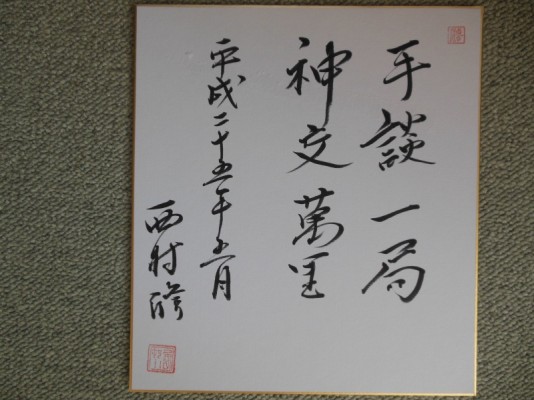 手談一局
神交萬里
平成二十五年五月
西村修